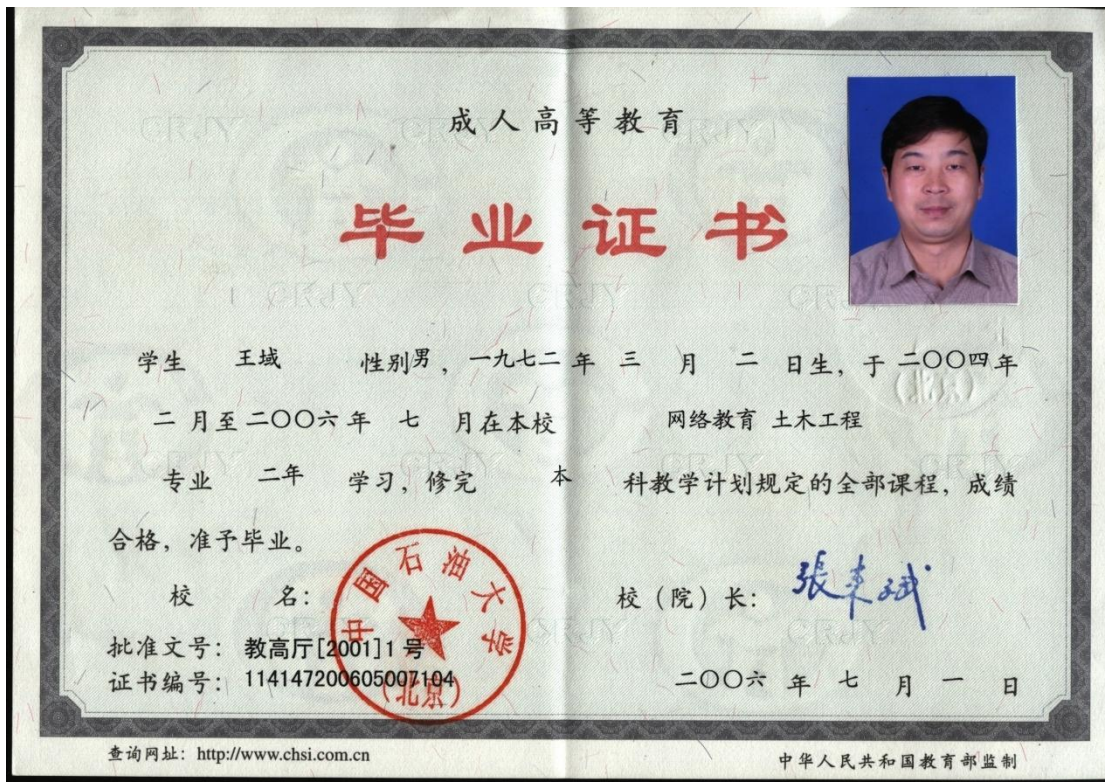 成人高等教育
毕业证书
学生 王域 性别男，一九七二年 三 月 二 日生，于二〇〇四年
二 月至二〇〇六年 七 月在本校 网络教育 土木工程
专业 二年 学习，修完 本 科教学计划规定的全部课程，成绩
合格，准予毕业。
校 名： 中国石油大学（北京） 校（院）长： 張來斌
批准文号： 教高厅[2001]1号
证书编号： 114147200605007104
二〇〇六 年 七 月 一 日
查询网址：http://www.chsi.com.cn 中华人民共和国教育部监制